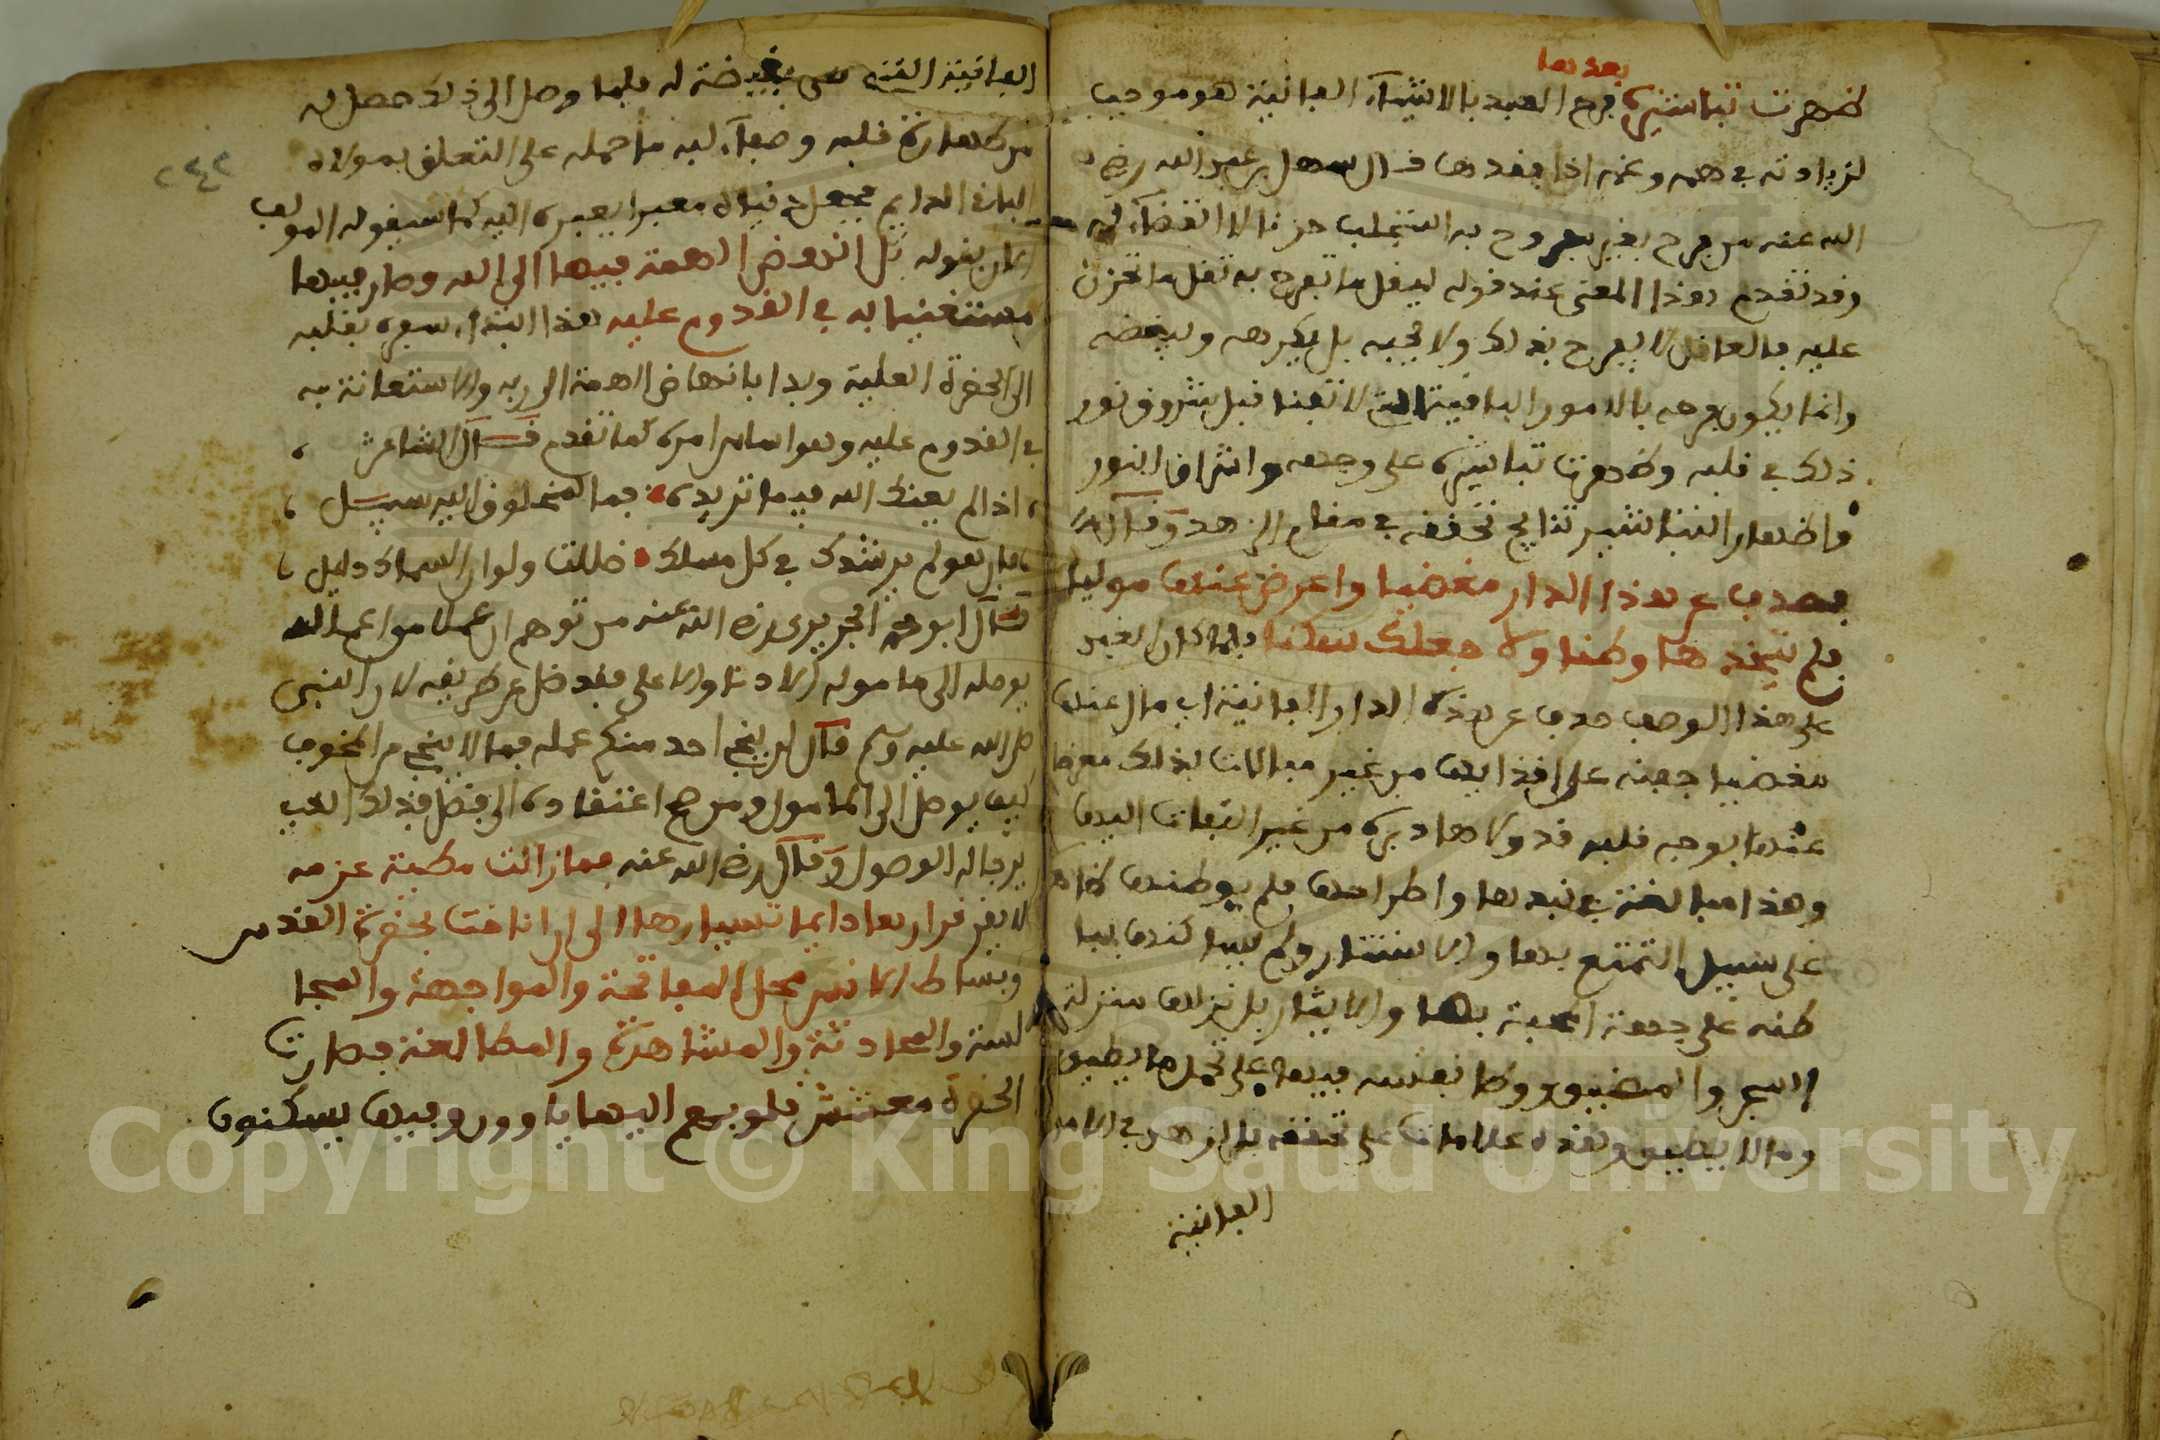 بعدها
ظهرت تباشيره فرح العبد بالاشياء الفانية هو موجب
لزيادته في همه وغمه اذا فقدها قال سهل بن عبد الله رضي
الله عنه من فرح بغير مفروح به استجلب حزنا لا انقضاء له
وقد تقدم هذا المعنى عند قوله ليقل ما تفرح به يقل ما تحزن
عليه فالعاقل لا يفرح بذلك ولا يحبه بل يكرهه ويبغضه
وانما يكون فرحه بالامور الباقية التي لا تفنا قبل شروق نور
ذلك في قلبه وظهرت تباشيره على وجهه واشراق النور
واظهار التباشير نتايج تحققه في مقام الزهد وقال
فصدف عن هذا الدار مغضيا واعرض عنها موليا
فلم يتخذها وطنا ولا جعلها سكنا فلما كان العبد
على هذا الوصف صدف عن هذه الدار الفانية اي مال عنها
مغضيا جفنه على اقذايها من غير مبالات بذلك معرضا
عنها بوجه قلبه قد ولاها دبره من غير التفات اليها
وهذا مبالغة في نبذها واطراحها فلم يوطنها ظاهره
على سبيل التمتع بها والاستئثار ولم يساكنها ببا
طنه على جهة المحبة بها والايثار بل نزلها منزلة
السجن والمضيق ووطا نفسه فيها على تحمل ما يطيق
وما لا يطيق وهذه علامات على تحققه بالزهد في الامور
الفانية
٢٤٢
الفانية التي هي بغيضة له فلما وصل الى ذلك حصل له
من طهارة قلبه وصفاء لبه ما حمله على التعلق بمولاه
الباقي الدايم فجعل دنياه معبرا يعبره اليه كما سيقوله المولف
الان بقوله بل انهض الهمة فيها الى الله وصار فيها
مستعينا به في القدوم عليه هذا ابتداء سيره بقلبه
الى الحضرة العلية وبدا بانهاض الهمة الى ربه والاستعانة به
في القدوم عليه وهو اساس امره كما تقدم قال الشاعر
اذا لم يعنك الله فيما تريده فما لمخلوق اليه سبيل
وان هو لم يرشدك في كل مسلك ضللت ولو ان السماك دليل
قال ابو محمد الجريري رضي الله عنه من توهم ان عملا من اعماله
يوصله الى ماموله الادنا والاعلى فقد ضل عن طريقه لان النبي
صلى الله عليه وسلم قال لن ينجي احد منكم عمله فما لا ينجي من المخوف
كيف يوصل الى المامول ومن صح اعتقاده الى فضل الله فذلك الذي
يرجا له الوصول وقال رضي الله عنه فما زالت مطية عزمه
لا يقر قرارها دايما تسيارها الى ان اناخت بحضرة القدس
وبساط الانس محل المفاتحة والمواجهة والمجا
لسة والمحادثة والمشاهدة والمطالعة فصارت
الحضرة معشش قلوبهم اليها ياوون وفيها يسكنون
Copyright © King Saud University